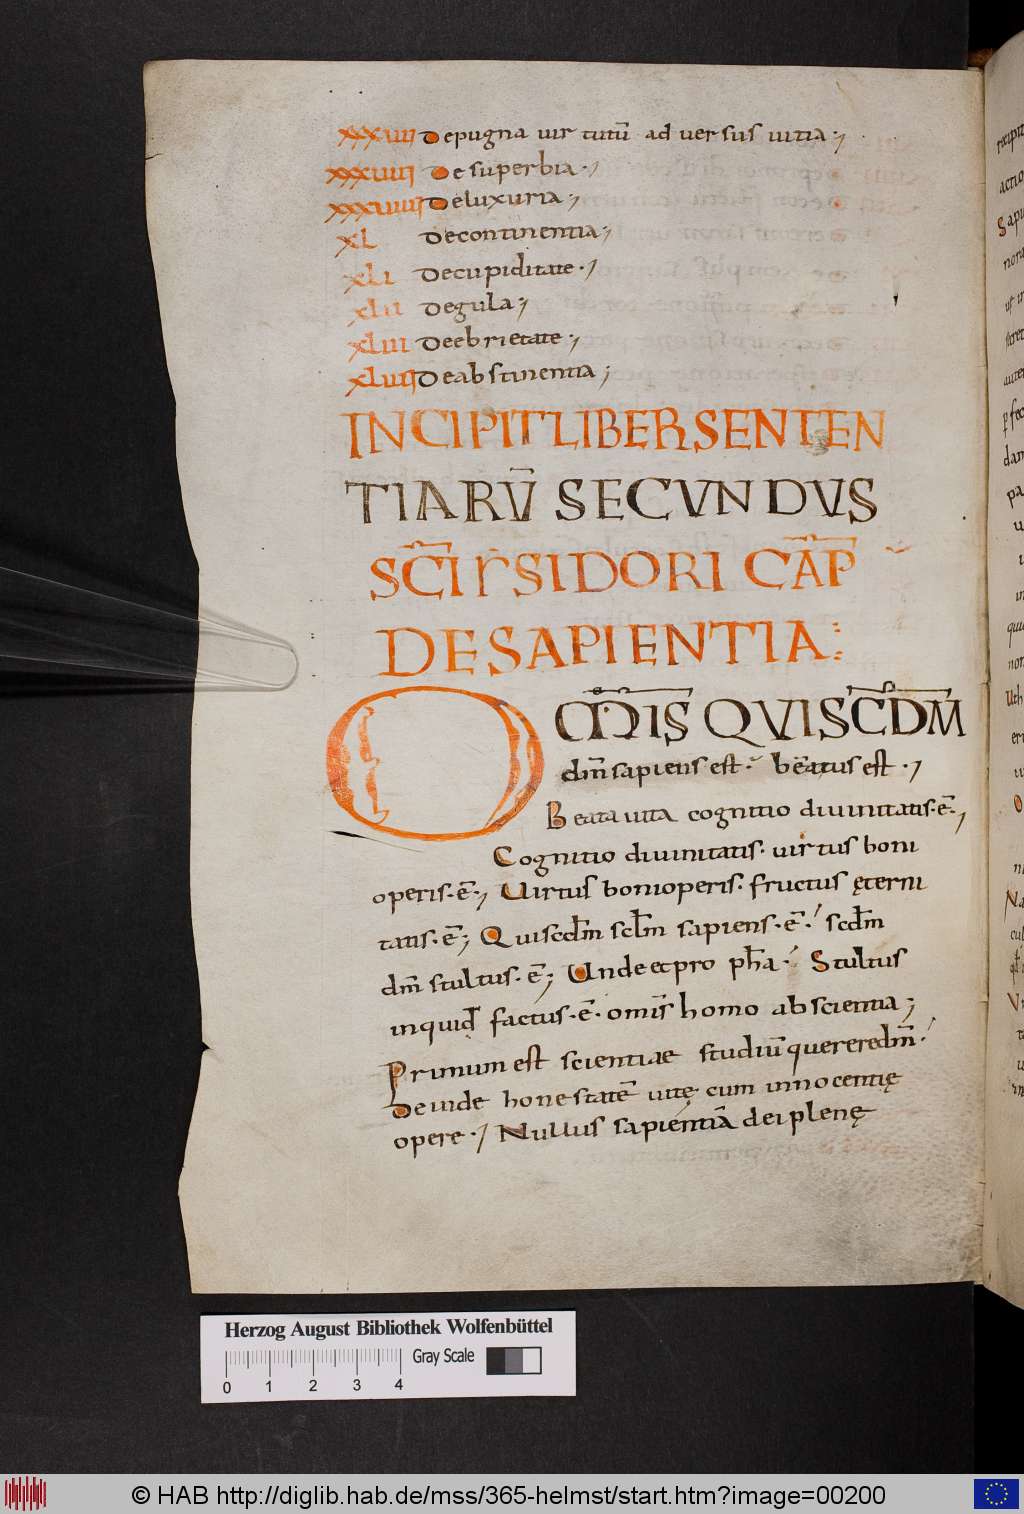 XXXVII De pugna uirtutū ad uersus uitia
XXXVIII De superbia
XXXVIIII De luxuria
XL De continentia
XLI De cupiditate
XLII De gula
XLIII De ebrietate
XLIIII De abstinentia
INCIPIT LIBER SENTEN
TIARŪ SECUNDUS
SC̄I YSIDORI CAP̄
DE SAPIENTIA
OM̄IS QUI SCD̄M
dm̄ sapiens est. beatus est.
Beata uita cognitio diuinitatis. ē.
Cognitio diuinitatis. uirtus boni
operis. ē. Uirtus boni operis. fructus ęterni
tatis. ē; Qui scdm̄ sclm̄ sapiens. ē. scdm̄
dm̄ stultus. ē; Unde et pro ph̄a. Stultus
inquid factus. ē. omīs homo ab scientia;
Primum est scientiae studiū querere dm̄.
Deinde honestatē uitę cum innocentię
opere. Nullus sapientiā dei plenę
Herzog August Bibliothek Wolfenbüttel
Gray Scale
0 1 2 3 4
© HAB http://diglib.hab.de/mss/365-helmst/start.htm?image=00200